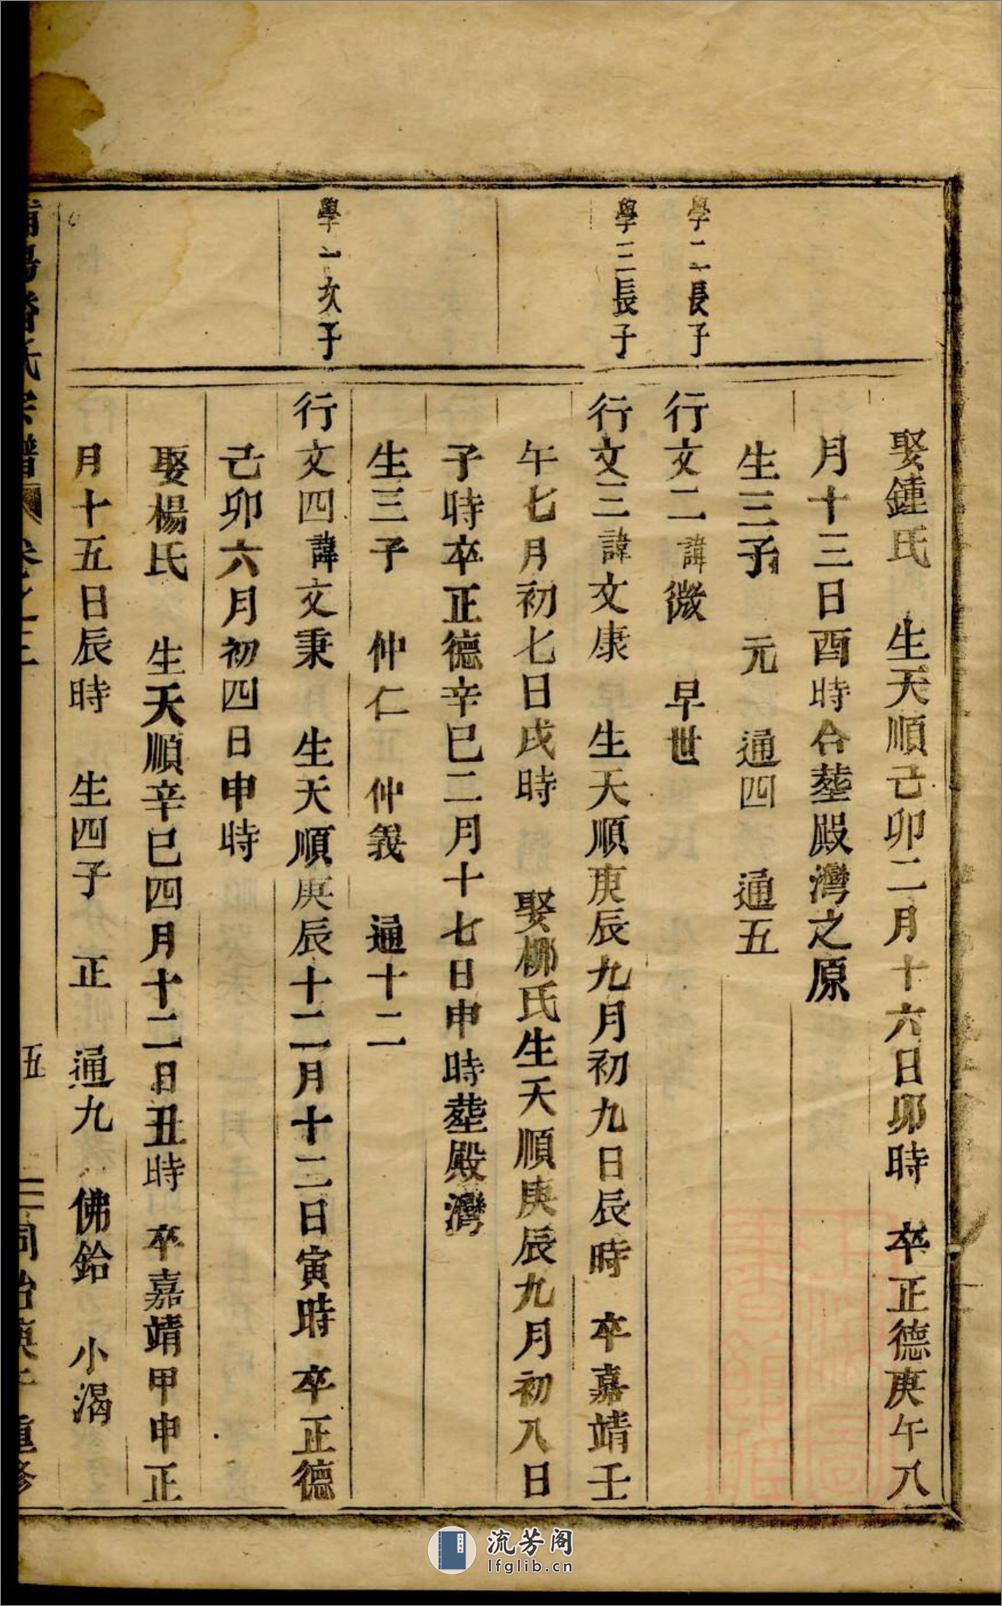 娶鍾氏 生天順己卯二月十六日卯時 卒正德庚午八
月十三日酉時合塟殿灣之原
生三子 元 通四 通五
學二長子
行文二諱微 早世
學三長子
行文三諱文康 生天順庚辰九月初九日辰時 卒嘉靖壬
午七月初七日戌時 娶栁氏生天順庚辰九月初八日
子時卒正德辛巳二月十七日申時塟殿灣
生三子 仲仁 仲義 通十二
學一次子
行文四諱文秉 生天順庚辰十二月十二日寅時 卒正德
己卯六月初四日申時
娶楊氏 生天順辛巳四月十二日丑時 卒嘉靖甲申正
月十五日辰時 生四子 正 通九 佛鉿 小渴
氏宗譜 卷之三 五 同治庚午重修
流芳阁
lfglib.cn